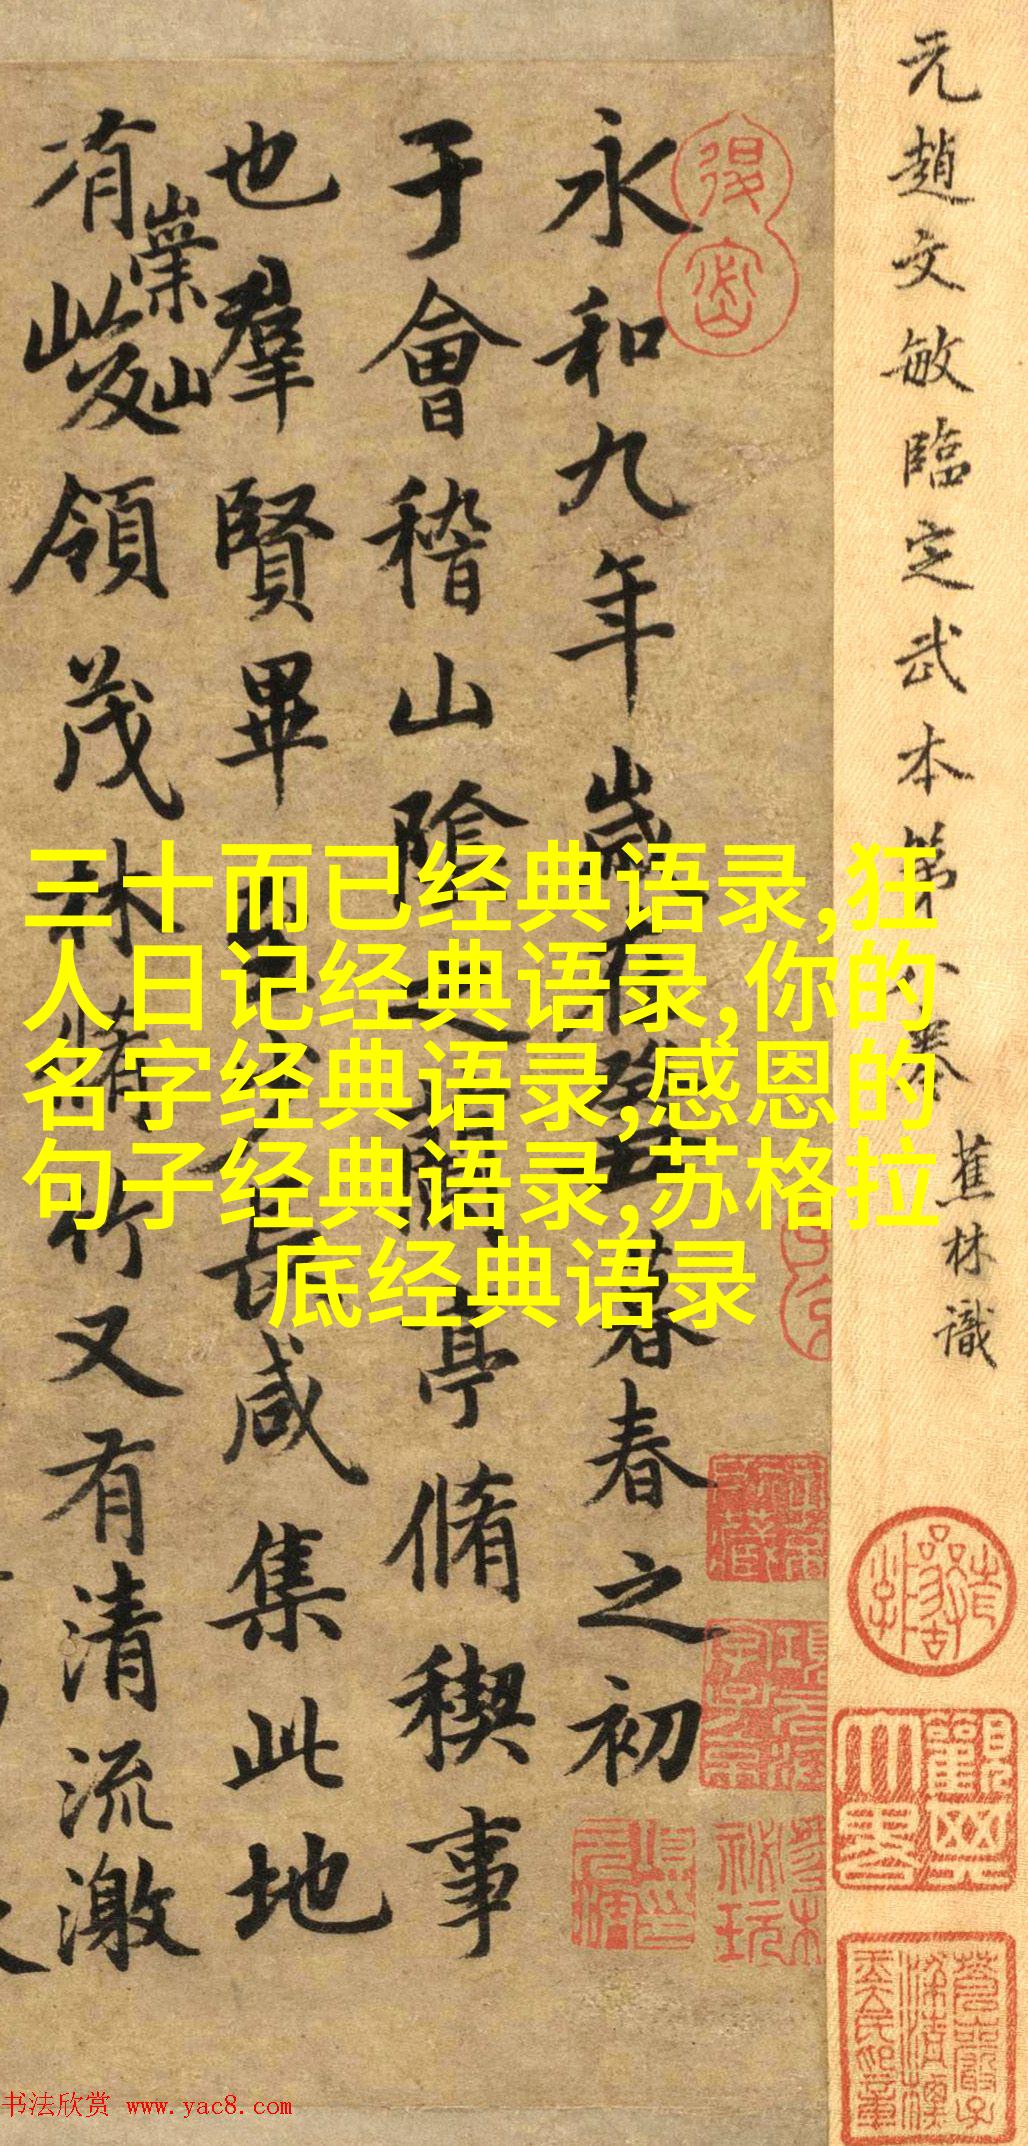 元趙文敏臨定武本第八卷
蕉林識
永和九年歲在癸丑暮春之初
于會稽山隂之蘭亭脩稧事
也羣賢畢至少長咸集此地
有崇山峻領茂林脩竹又有清流激
三十而已经典语录,狂
人日记经典语录,你的
名字经典语录,感恩的
句子经典语录,苏格拉
底经典语录
书法欣赏 www.yac8.com